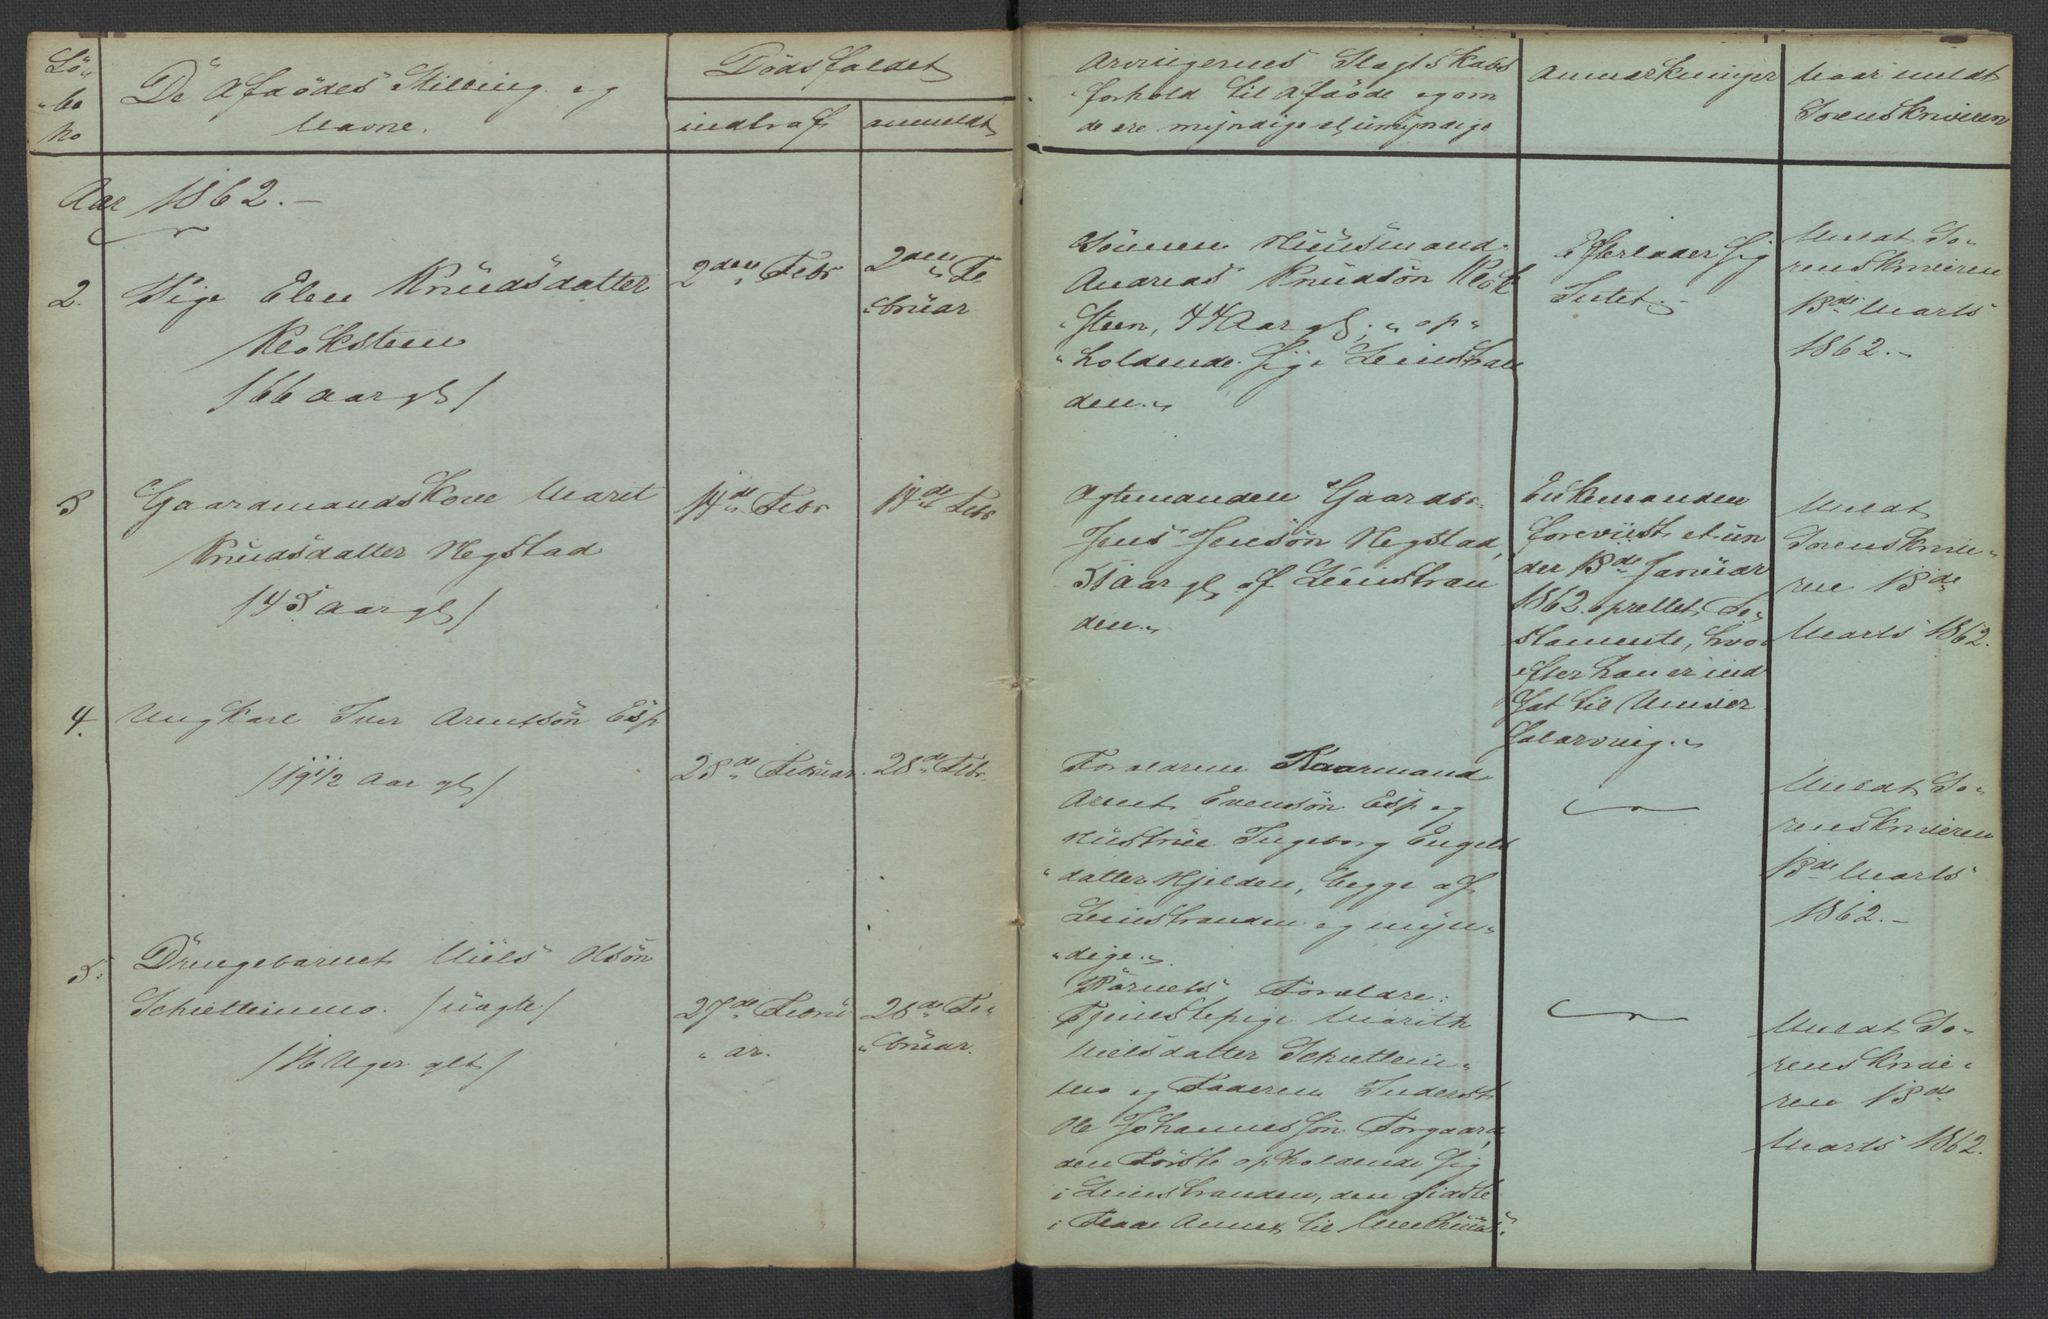 Lö-
"be
No
De Afdödes Stilling og
Navne.
Dödsfaldet
indtraf
anmeldt
Arvingernes Slagtskabs
forhold til Afdöde og om
de ere myndige el umyndige
Anmærkninger
Naar meldt
Sorenskriveren
Aar 1862.-
2.
Pige Elen Knudsdatter
Kløksteen
/66 Aar gl/
2den Febr
2den Fe
"bruar
Sönnen Huusmand
Andreas Knudsön Kløk
"steen, 44 Aar gl, " op"
"holdende sig i Leinstran
den."
Efterlader sig
Intet.-
Meldt So-
renskriveren
13de Marts
1862.-
3
Gaardmandskone Marit
Knudsdatter Hegstad
/45 Aar gl/
14de Febr
14de Febr
Ægtemanden Gaardbr.
Jens Jensøn Hegstad,
51 Aar gl af Leinstran
den."
Enkemanden
foreviist et un
der 13de Januar
1862 oprettet Te-
stamente, hvor
efter han er ind
sat til Univer
salarving."
Meldt
Sorenskrive-
ren 13de
Marts 1862.
4.
Ungkarl Iver Arntsön Esp
/19 1/2 Aar gl/
28de Februar
28de Febr.
Forældrene Kaarmand
Arent Evensön Esp og
Hustrue Ingeborg Engels
"datter Hjelden, begge af
Leinstranden og myn-
"dige."
Meldt So-
renskriveren
13de Marts
1862.-
5.
Drengebarnet Niels Olsön
Schietleinmo. /uægte/
/16 Uger glt/
27de Febru
" ar.
28de Fe-
"bruar.
Barnets Forældre:
Tjenstepige Marith
Nielsdatter Schietlein-
mo og Faderen Inderst
Ole Johannessön Forgaard,
den Første opholdende sig
i Leinstranden, den sidste
i Flaae Annex til Meelhuus.
Meldt So-
renskrive-
ren 13de
Marts 1862.